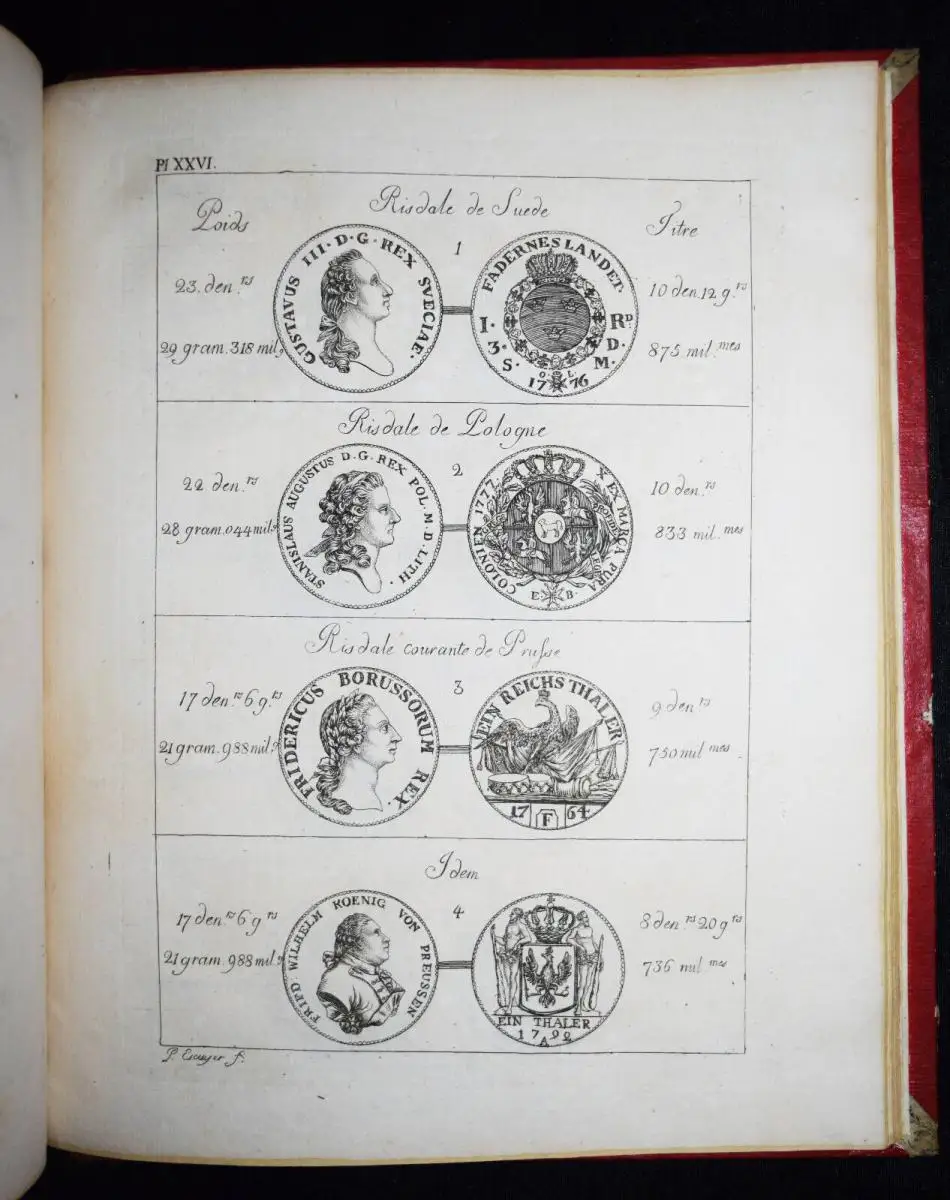 Pl XXVI.
Risdale de Suede
Poids
Titre
1
23. den.rs
29 gram. 318 mil.
GUSTAVUS III · D · G · REX SVECIAE ·
FÄDERNESLANDET.
I · RD.
3 · D ·
S · M ·
O · L ·
1776
10 den. 12 g.rs
875 mil.mes
Risdale de Pologne
2
22 den.rs
28 gram. 044 mil.
STANISLAUS AUGUSTUS D . G . REX POL . M . D . LITH .
X EX MARCA PURA COLONIEN 1777.
E · B ·
10 den.rs
833 mil.mes
Risdale courante de Prusse
3
17 den.rs 6 g.rs
21 gram. 988 mil.
FRIDERICUS BORUSSORUM REX.
EIN REICHS THALER
17 F 64
9 den.rs
750 mil.mes
Idem
4
17 den.rs 6 g.rs
21 gram. 988 mil.
FRIED. WILHELM KOENIG VON PREUSSEN
EIN THALER
1792
A
8 den.rs 20 g.rs
736 mil.mes
P. Escuyer f.